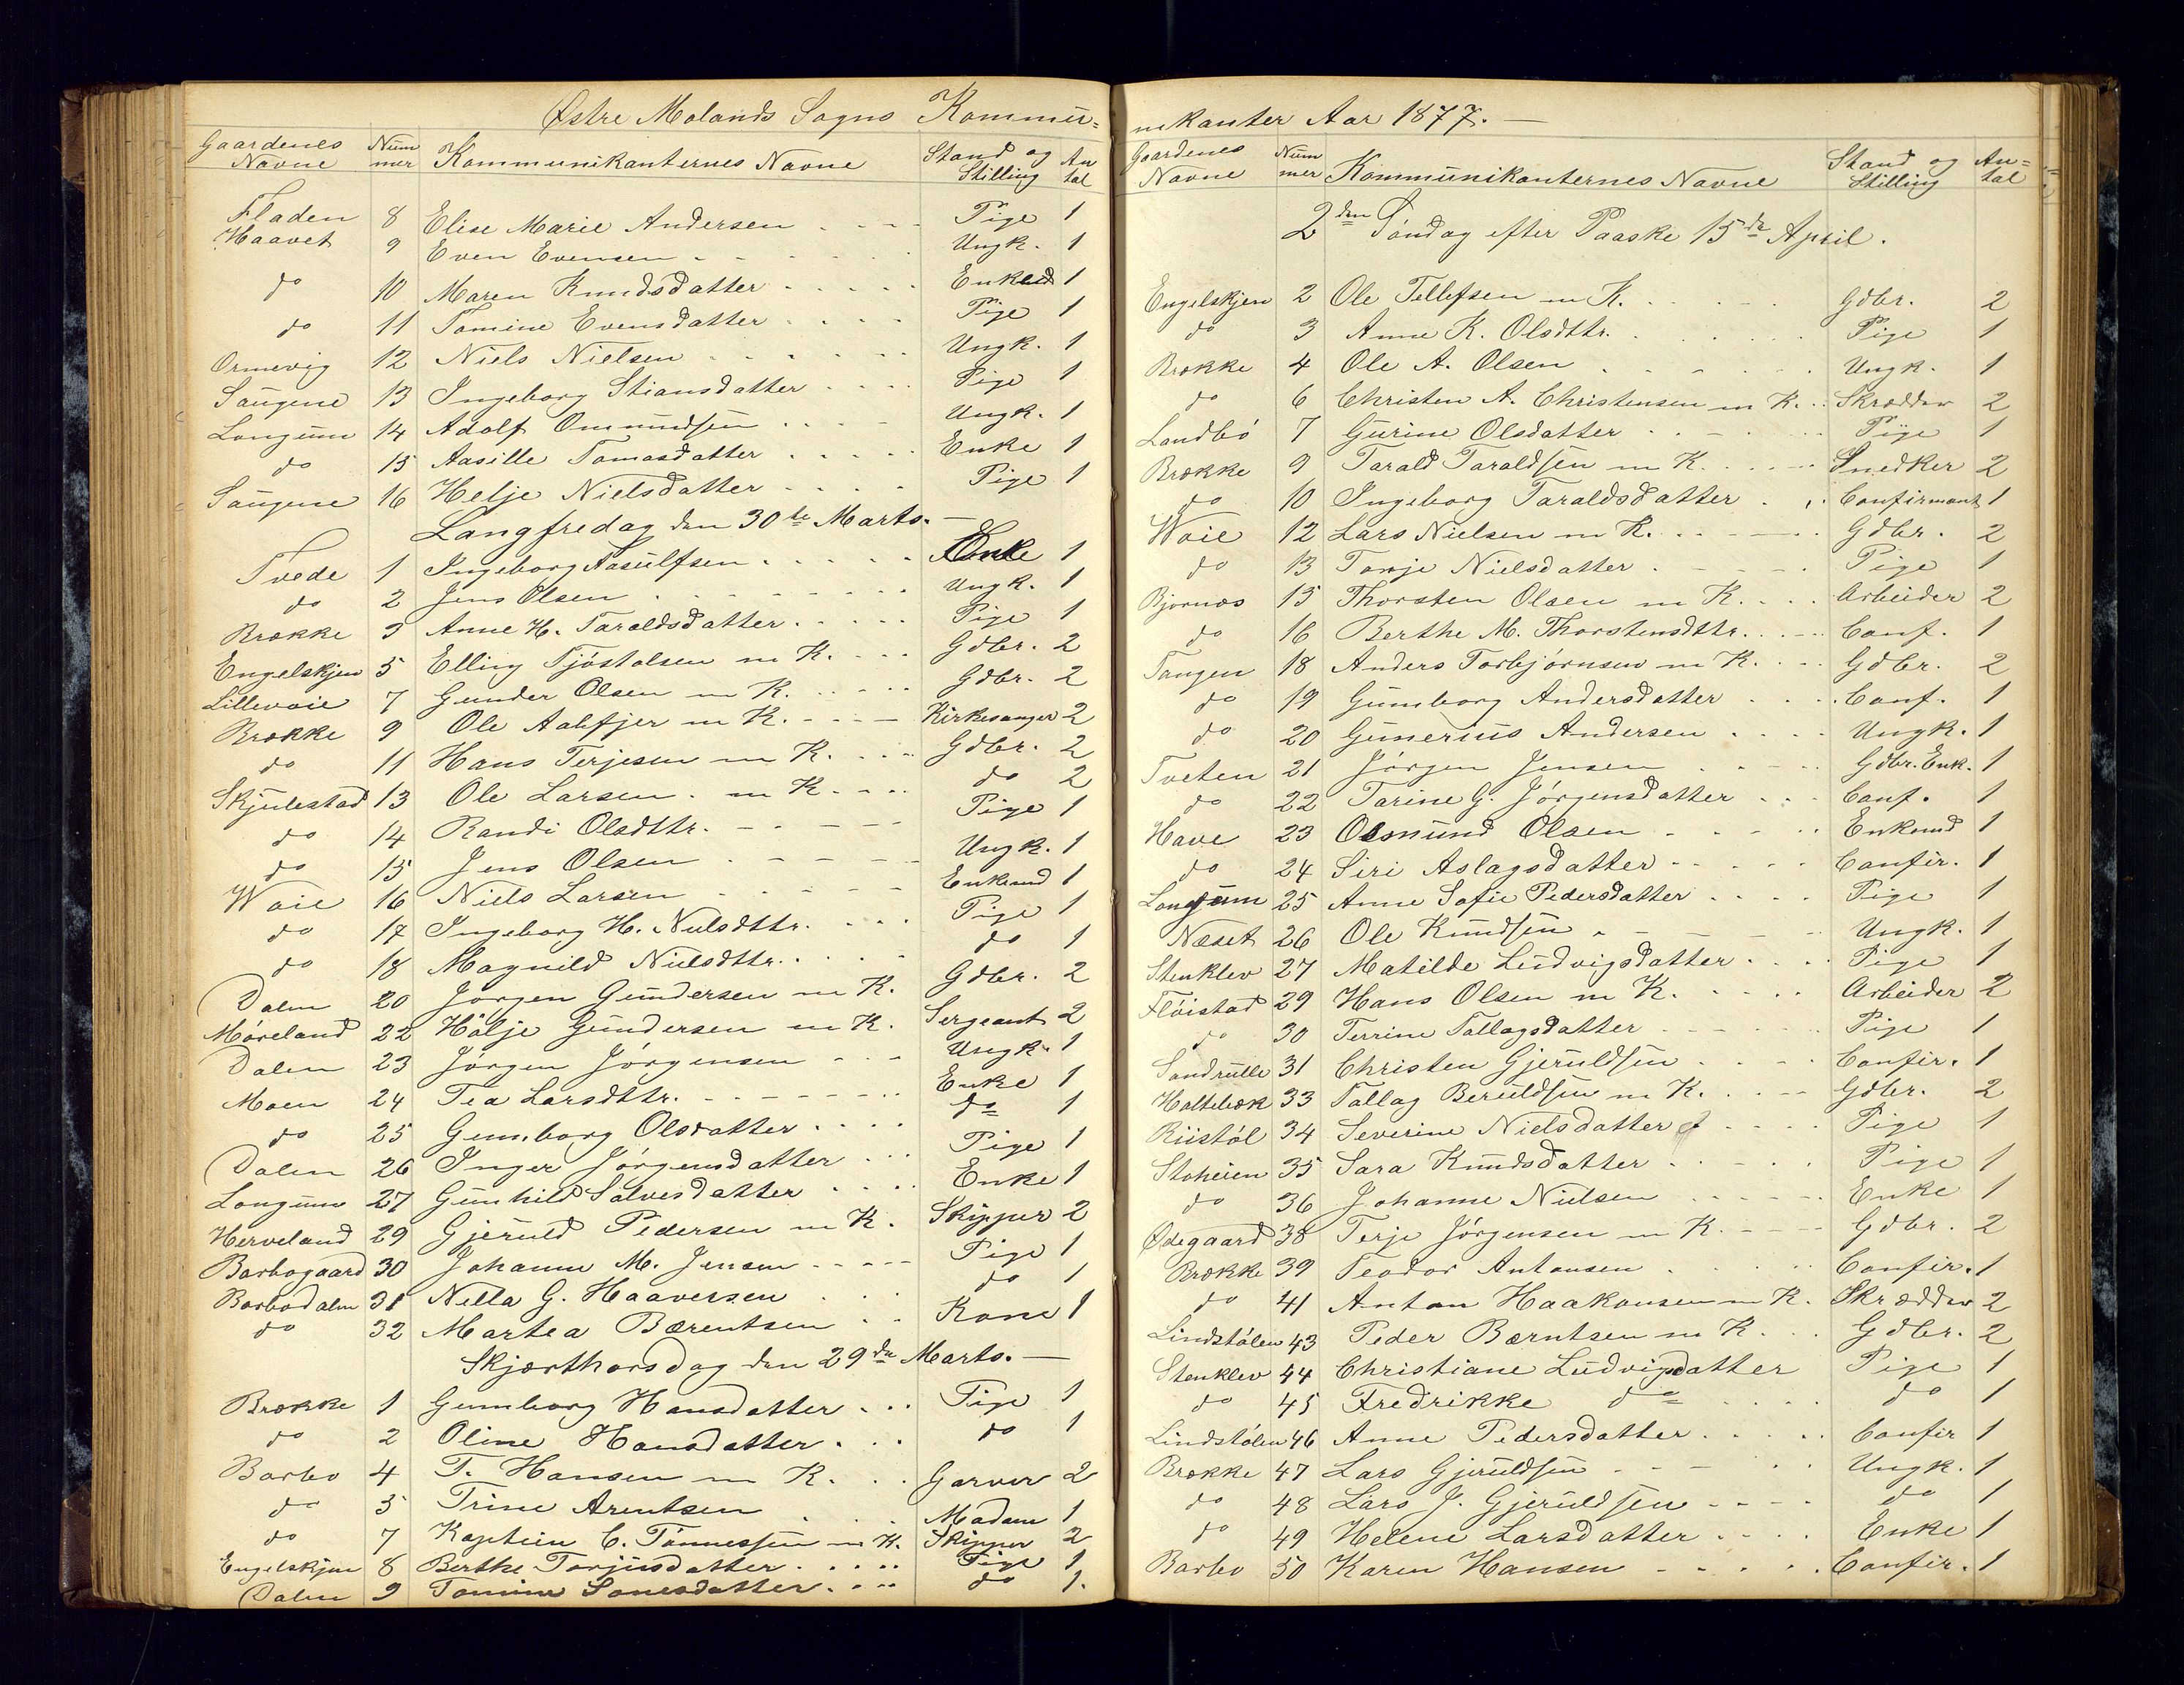 Østre Molands Sogns Kommu=
Gaardenes Navne Num mer Kommunikanternes Navne Stand og Stilling An tal
Fladen 8 Elise Marie Andersen Pige 1
Haavet 9 Even Evensen Ungk. 1
do 10 Maren Knudsdatter Enke 1
do 11 Tomine Evensdatter Pige 1
Ormevig 12 Niels Nielsen Ungk. 1
Saugene 13 Ingeborg Stiansdatter Pige 1
Longum 14 Adolf Omundsen Ungk. 1
do 15 Aasille Tomasdatter Enke 1
Saugene 16 Helje Nielsdatter Pige 1
Langfredag den 30te Marts. —
Tvede 1 Ingeborg Aasulfsen Enke 1
do 2 Jens Olsen Ungk. 1
Brække 3 Anne H. Taraldsdatter Pige 1
Engelskjen 5 Elling Tjöstolsen m K. Gdbr. 2
Lillevoie 7 Gunder Olsen m K. Gdbr. 2
Brække 9 Ole m K. Kirkesanger 2
do 11 Hans Terjesen m K. Gdbr. 2
Skjulestad 13 Ole Larsen m K do 2
do 14 Randi Olsdttr. Pige 1
do 15 Jens Olsen Ungk. 1
Woie 16 Niels Larsen Enkemd 1
do 17 Ingeborg H. Nielsdttr. Pige 1
do 18 Magnild Nielsdttr. do 1
Dalen 20 Jörgen Gundersen m K. Gdbr. 2
Möreland 22 Hölje Gundersen m K. Sergeant 2
Dalen 23 Jörgen Jörgensen Ungk. 1
Moen 24 Tea Larsdttr. Enke 1
do 25 Gunborg Olsdatter do 1
Dalen 26 Inger Jörgensdatter Pige 1
Longum 27 Gunhild Salvesdatter Enke 1
Herveland 29 Gjeruld Pedersen m K. Skipper 2
Barbogaard 30 Johanne M. Jensen Pige 1
Barbodalen 31 Nella G. Haaversen do 1
do 32 Martea Bærentsen Kone 1
Skjærthorsdag den 29de Marts. —
Brække 1 Gunborg Hansdatter Pige 1
do 2 Oline Hansdatter do 1
Barbo 4 T. Hansen m K. Garver 2
do 5 Trine Arentsen Madam 1
do 7 Kaptein C. Tönnessen m K. Skipper 2
Engelskjen 8 Berthe Torjusdatter Pige 1
Dalen 9 Tomine do 1.
nikanter Aar 1877. —
Gaardenes Navne Num mer Kommunikanternes Navne Stand og Stilling An= tal
2den Söndag efter Paaske 15de April.
Engelskjen 2 Ole Tellefsen m K. Gdbr. 2
do 3 Anne K. Olsdttr. Pige 1
Brække 4 Ole A. Olsen Ungk. 1
do 6 Christen A. Christensen m K. Skrædder 2
Landbö 7 Gurine Olsdatter Pige 1
Brække 9 Tarald Taraldsen m K. Snedker 2
do 10 Ingeborg Taraldsdatter Confirmant 1
Woie 12 Lars Nielsen m K. Gdbr. 2
do 13 Torje Nielsdatter Pige 1
Bjornæs 15 Thorsten Olsen m K. Arbeider 2
do 16 Berthe M. Thorstensdttr. Conf. 1
Tangen 18 Anders Torbjörnsen m K. Gdbr. 2
do 19 Gunborg Andersdatter Conf. 1
do 20 Gunerius Andersen Ungk. 1
Tveten 21 Jörgen Jensen Gdbr. Enk. 1
do 22 Tarine G. Jörgensdatter Conf. 1
Have 23 Osmund Olsen Enkemd 1
do 24 Siri Aslagsdatter Confir. 1
Longum 25 Anne Sofie Pedersdatter Pige 1
Næset 26 Ole Knudsen Ungk. 1
Stenklev 27 Matilde Ludvigsdatter Pige 1
Flöistad 29 Hans Olsen m K. Arbeider 2
do 30 Terrine Tallagsdatter Pige 1
Sandrulle 31 Christen Gjeruldsen Confir. 1
Holtebæk 33 Tallag Beruldsen m K. Gdbr. 2
Riistöl 34 Severine Nielsdatter Pige 1
Stoheien 35 Sara Knudsdatter Pige 1
do 36 Johanne Nielsen Enke 1
Ödegaard 38 Terje Jörgensen m K. Gdbr. 2
Brække 39 Teodor Antonsen Confir. 1
do 41 Anton Haakonsen m K. Skrædder 2
Lindstölen 43 Peder Bærntsen m K. Gdbr. 2
Stenklev 44 Christiane Ludvigsdatter Pige 1
do 45 Fredrikke do do 1
Lindstölen 46 Anne Pedersdatter Confir 1
Brække 47 Lars Gjeruldsen Ungk. 1
do 48 Lars J. Gjeruldsen do 1
do 49 Helene Larsdatter Enke 1
Barbo 50 Karen Hansen Confir. 1